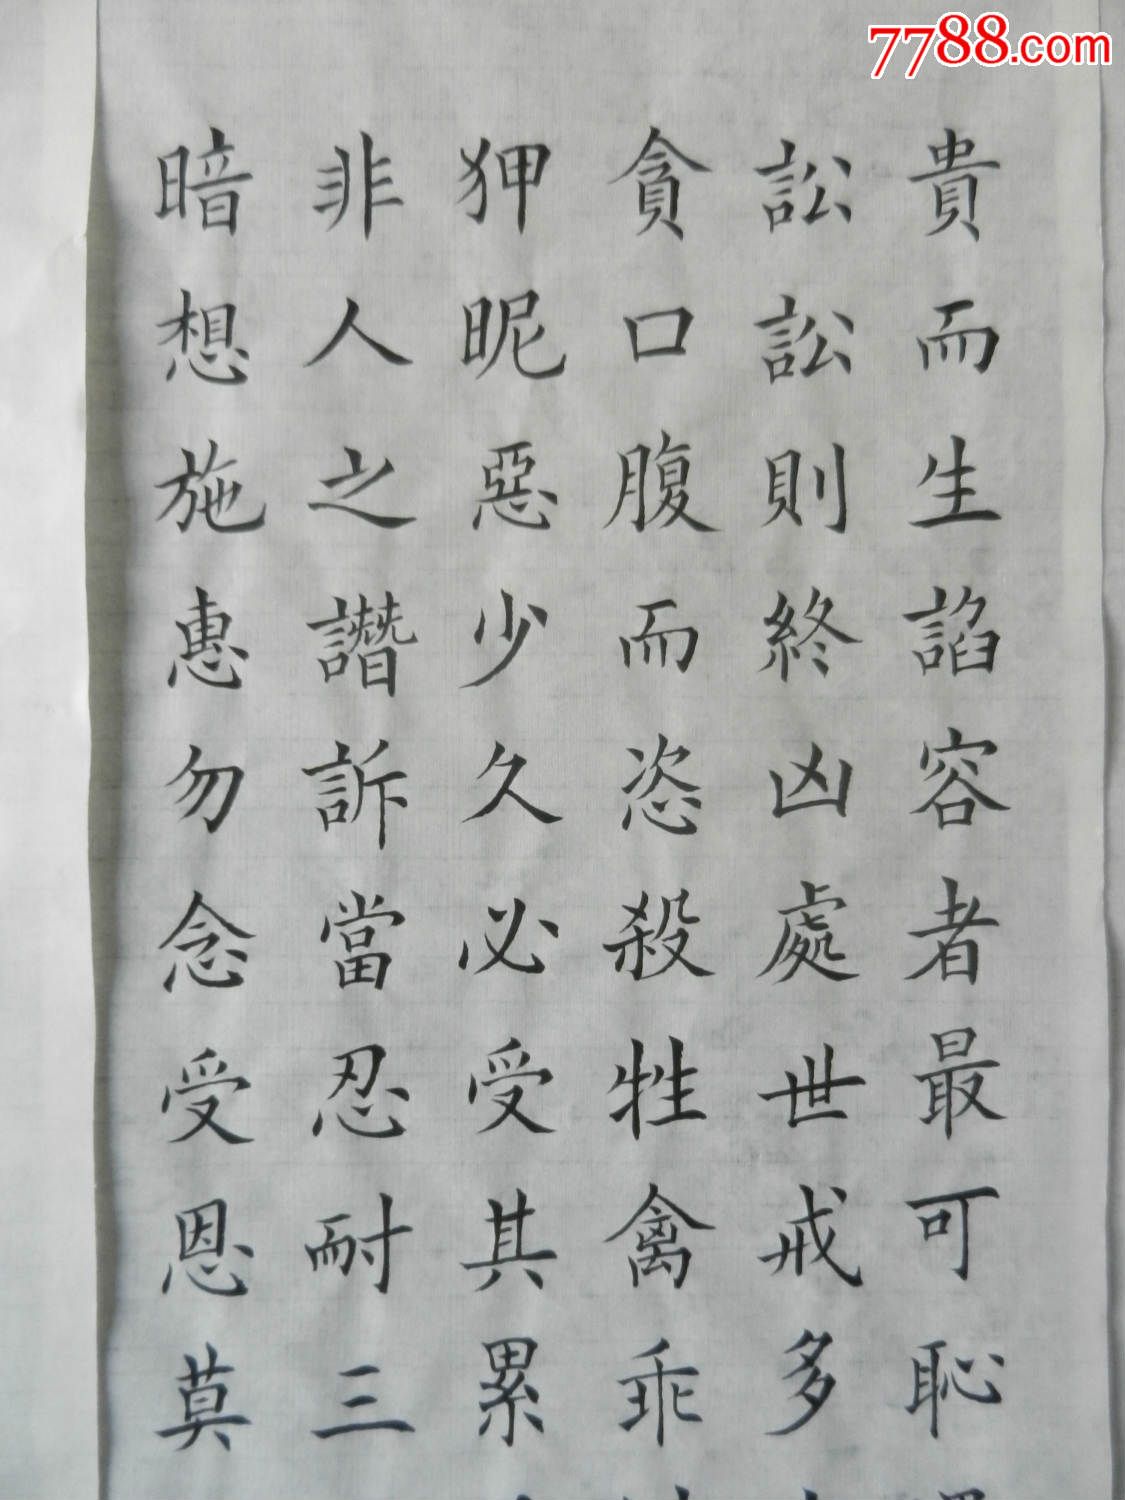 7788.com
貴而生諂容者最可恥
訟訟則終凶處世戒多
貪口腹而恣殺牲禽乖
狎昵惡少久必受其累
非人之譖訴當忍耐三
暗想施惠勿念受恩莫